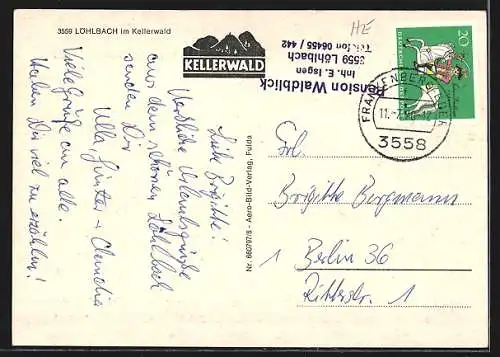 3559 LÖHLBACH im Kellerwald
HE
KELLERWALD
Pension Waldblick
Inh. E. Isgen
3559 Löhlbach
Telefon 06455 / 442
20
FRANKENBERG, EDER
3558
Liebe Brigitte!
Herzliche Urlaubsgrüße
aus dem schönen Löhlbach
senden Dir
Ulla, Günter + Claudia
Viele Grüße an alle.
Haben Dir viel zu erzählen!
Nr. 660797/8 - Aero-Bild-Verlag, Fulda
Frl.
Brigitte Bergmann
1 Berlin 36
Ritterstr. 1